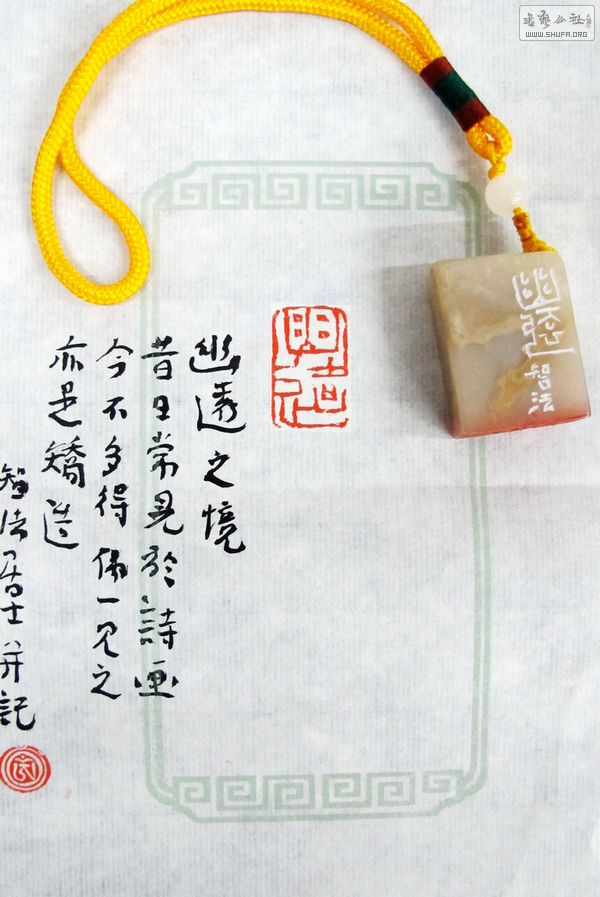 書藝公社
WWW.SHUFA.ORG
幽遠
智法
幽遠之境
昔日常見於詩画
今不多得偶一見之
亦是矯造
智法居士并記